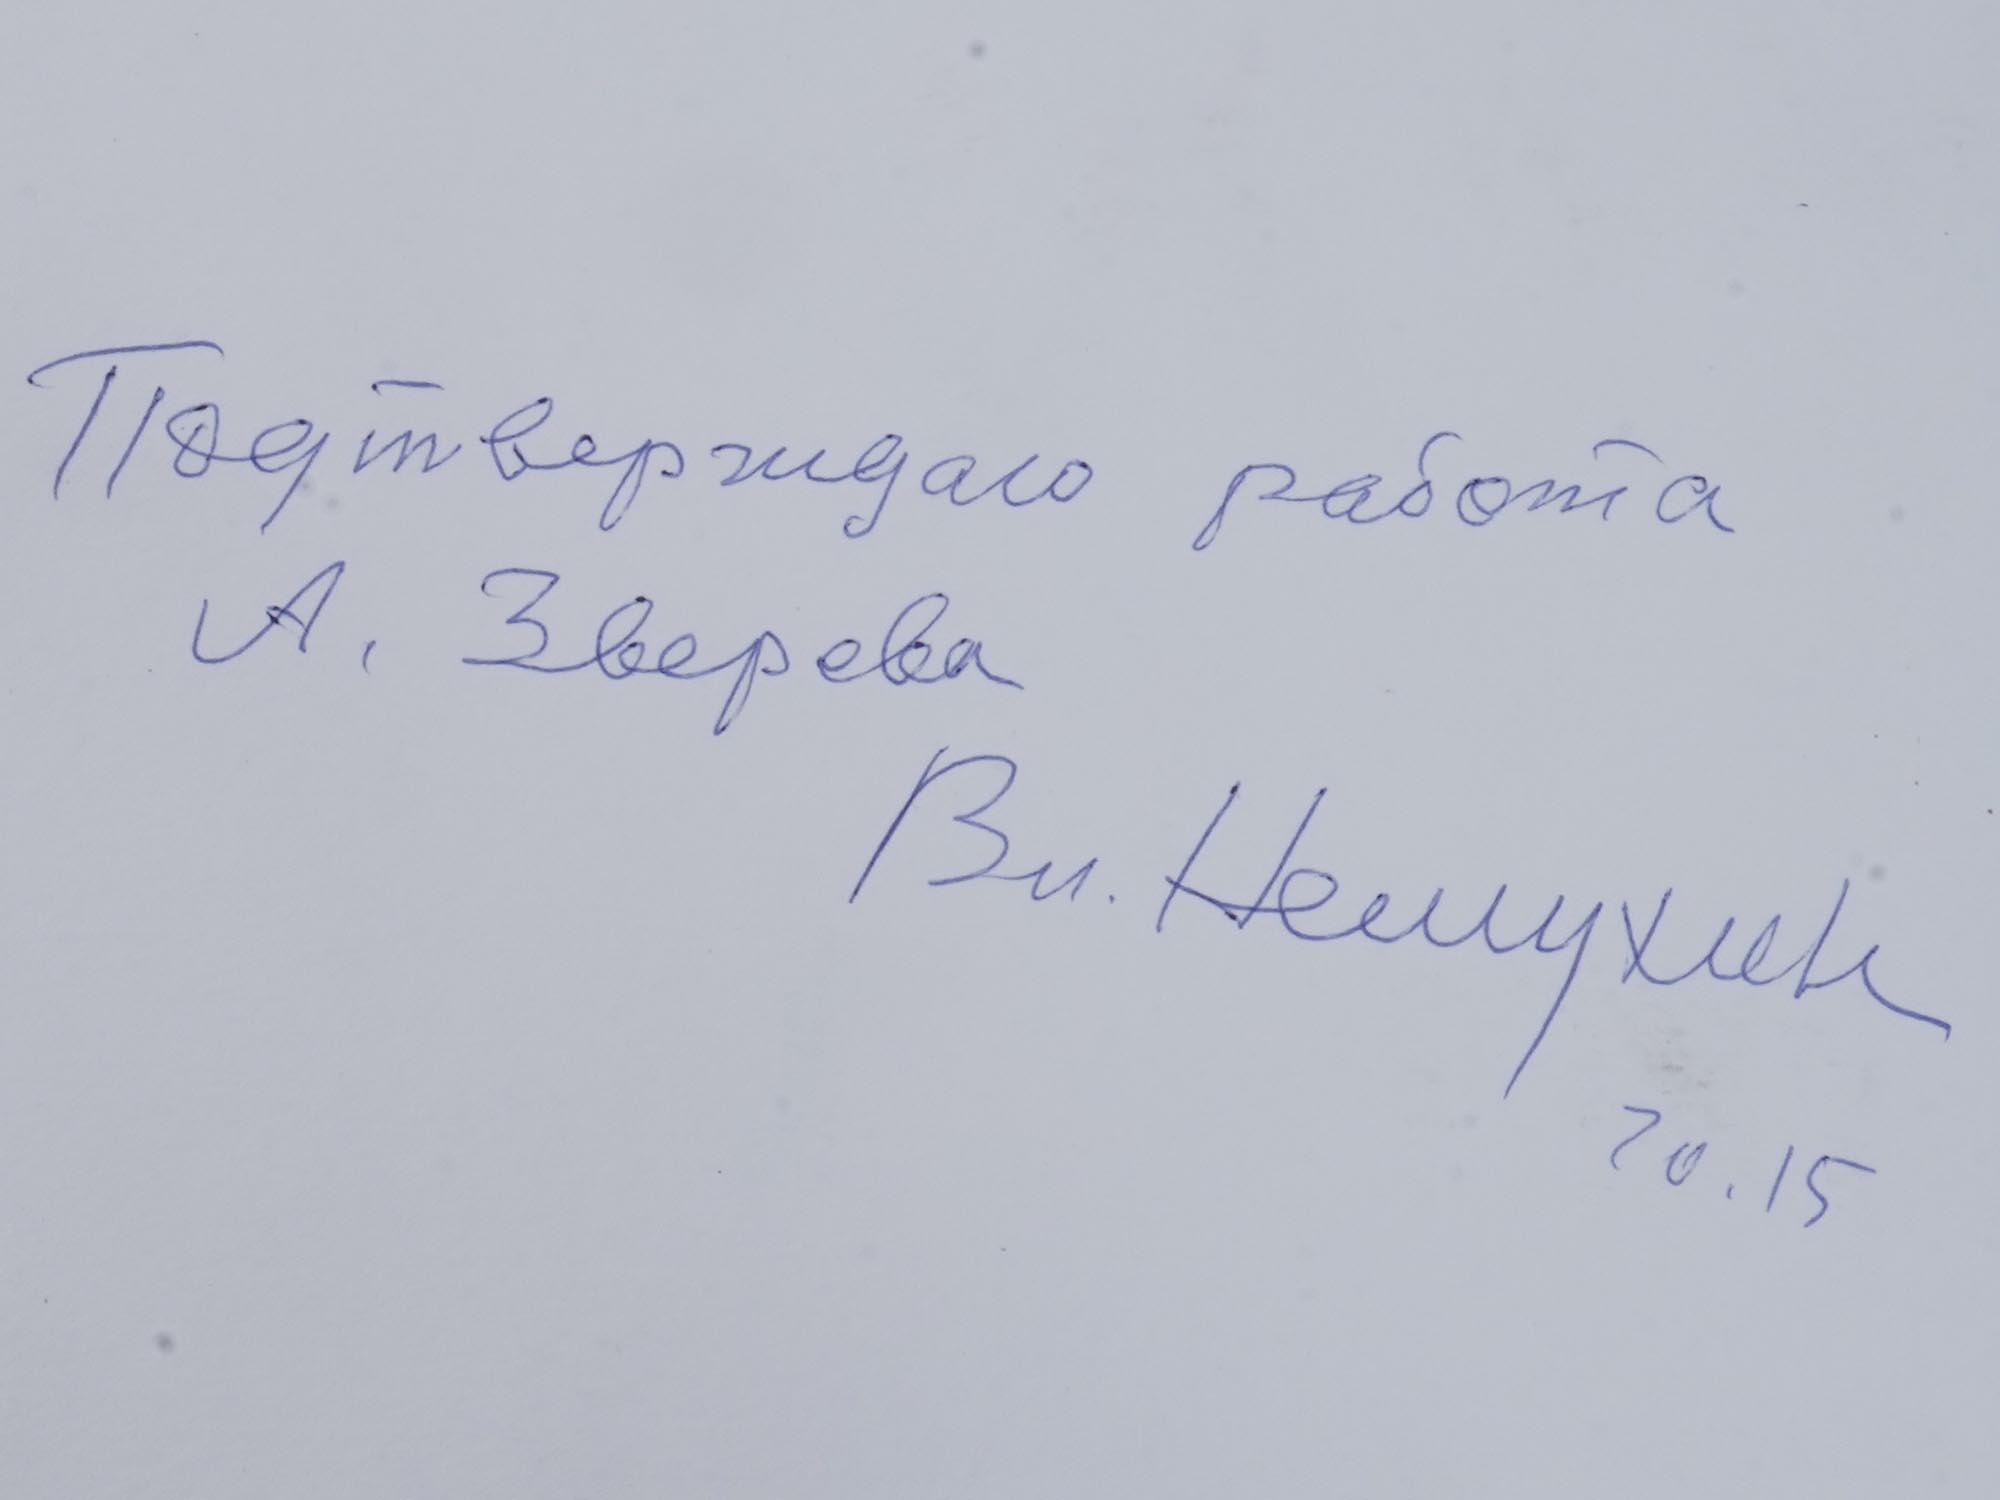 Подтверждаю работа
А. Зверева
Вл. Немухин
20.15